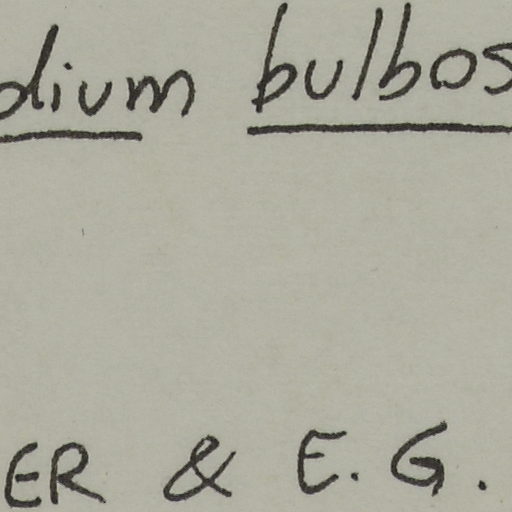 dium bulbos
ER & E. G.